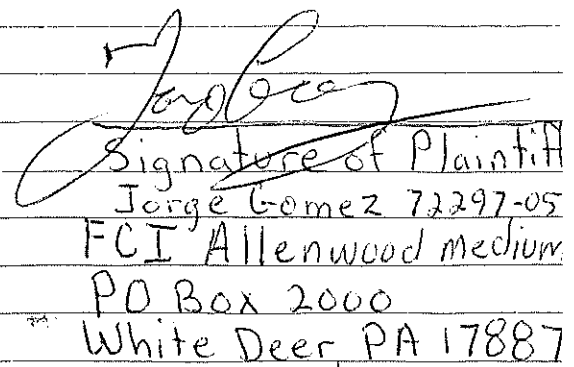 Signature of Plaintiff
Jorge Gomez 72297-05
FCI Allenwood medium
PO Box 2000
White Deer PA 17887